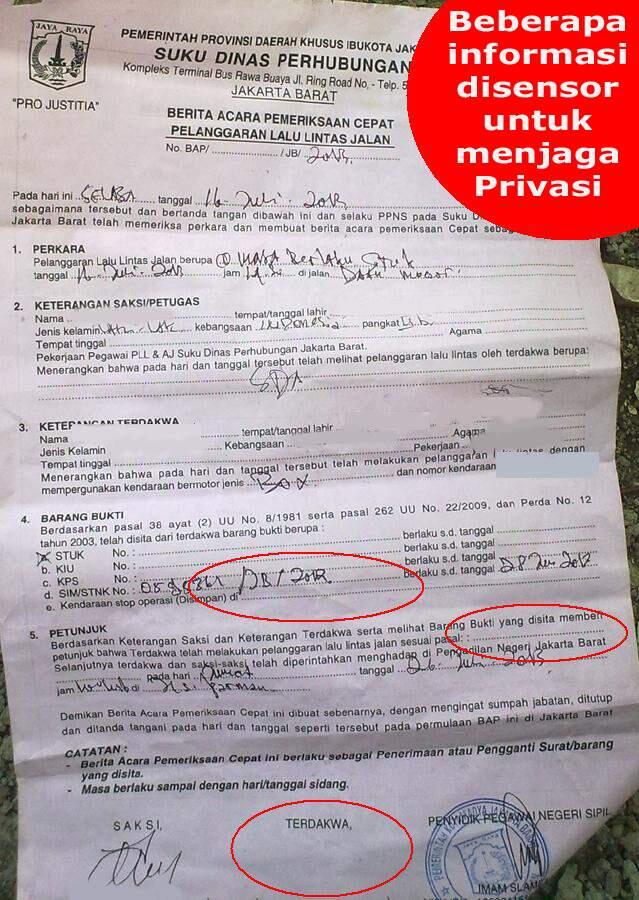 Beberapa
informasi
disensor
untuk
menjaga
Privasi
JAYA RAYA
"PRO JUSTITIA"
PEMERINTAH PROVINSI DAERAH KHUSUS IBUKOTA JAK
SUKU DINAS PERHUBUNGAN
Kompleks Terminal Bus Rawa Buaya Jl. Ring Road No. - Telp. 5
JAKARTA BARAT
BERITA ACARA PEMERIKSAAN CEPAT
PELANGGARAN LALU LINTAS JALAN
No. BAP/ /JB/ 2013
Pada hari ini SELASA tanggal 16 - Juli - 2013
sebagaimana tersebut dan bertanda tangan dibawah ini dan selaku PPNS pada Suku D
Jakarta Barat telah memeriksa perkara dan membuat berita acara pemeriksaan Cepat sebag
1. PERKARA
Pelanggaran Lalu Lintas Jalan berupa Masa Berlaku STUK
tanggal 16 - Juli - 2013 jam di jalan Daan Mogot
2. KETERANGAN SAKSI/PETUGAS
Nama tempat/tanggal lahir
Jenis kelamin kebangsaan Indonesia pangkat
Tempat tinggal Agama
Pekerjaan Pegawai PLL & AJ Suku Dinas Perhubungan Jakarta Barat.
Menerangkan bahwa pada hari dan tanggal tersebut telah melihat pelanggaran lalu lintas oleh terdakwa berupa:
SDA
3. KETERANGAN TERDAKWA
Nama tempat/tanggal lahir
Jenis Kelamin Kebangsaan Agama
Tempat tinggal Pekerjaan
Menerangkan bahwa pada hari dan tanggal tersebut telah melakukan pelanggaran lalu lintas dengan
mempergunakan kendaraan bermotor jenis Box dan nomor kendaraan
4. BARANG BUKTI
Berdasarkan pasal 38 ayat (2) UU No. 8/1981 serta pasal 262 UU No. 22/2009, dan Perda No. 12
tahun 2003, telah disita dari terdakwa barang bukti berupa :
a. STUK No. : berlaku s.d. tanggal
b. KIU No. : berlaku s.d. tanggal
c. KPS No. : berlaku s.d. tanggal
d. SIM/STNK No. : /JB/ 2012 berlaku s.d. tanggal 28 2013
e. Kendaraan stop operasi (Disimpan) di
5. PETUNJUK
Berdasarkan Keterangan Saksi dan Keterangan Terdakwa serta melihat Barang Bukti yang disita memberi
petunjuk bahwa Terdakwa telah melakukan pelanggaran lalu lintas jalan sesuai pasal: :
Selanjutnya terdakwa dan saksi-saksi telah diperintahkan menghadap di Pengadilan Negeri Jakarta Barat
Pada hari Jumat tanggal 26 - Juli 2013
jam di Jl. S. Parman
Demikian Berita Acara Pemeriksaan Cepat ini dibuat sebenarnya, dengan mengingat sumpah jabatan, ditutup
dan ditanda tangani pada hari dan tanggal seperti tersebut pada permulaan BAP ini di Jakarta Barat
CATATAN :
- Berita Acara Pemeriksaan Cepat ini berlaku sebagai Penerimaan atau Pengganti Surat/barang
yang disita.
- Masa berlaku sampai dengan hari/tanggal sidang.
SAKSI,
TERDAKWA,
PENYIDIK PEGAWAI NEGERI SIPIL
IMAM SLAM